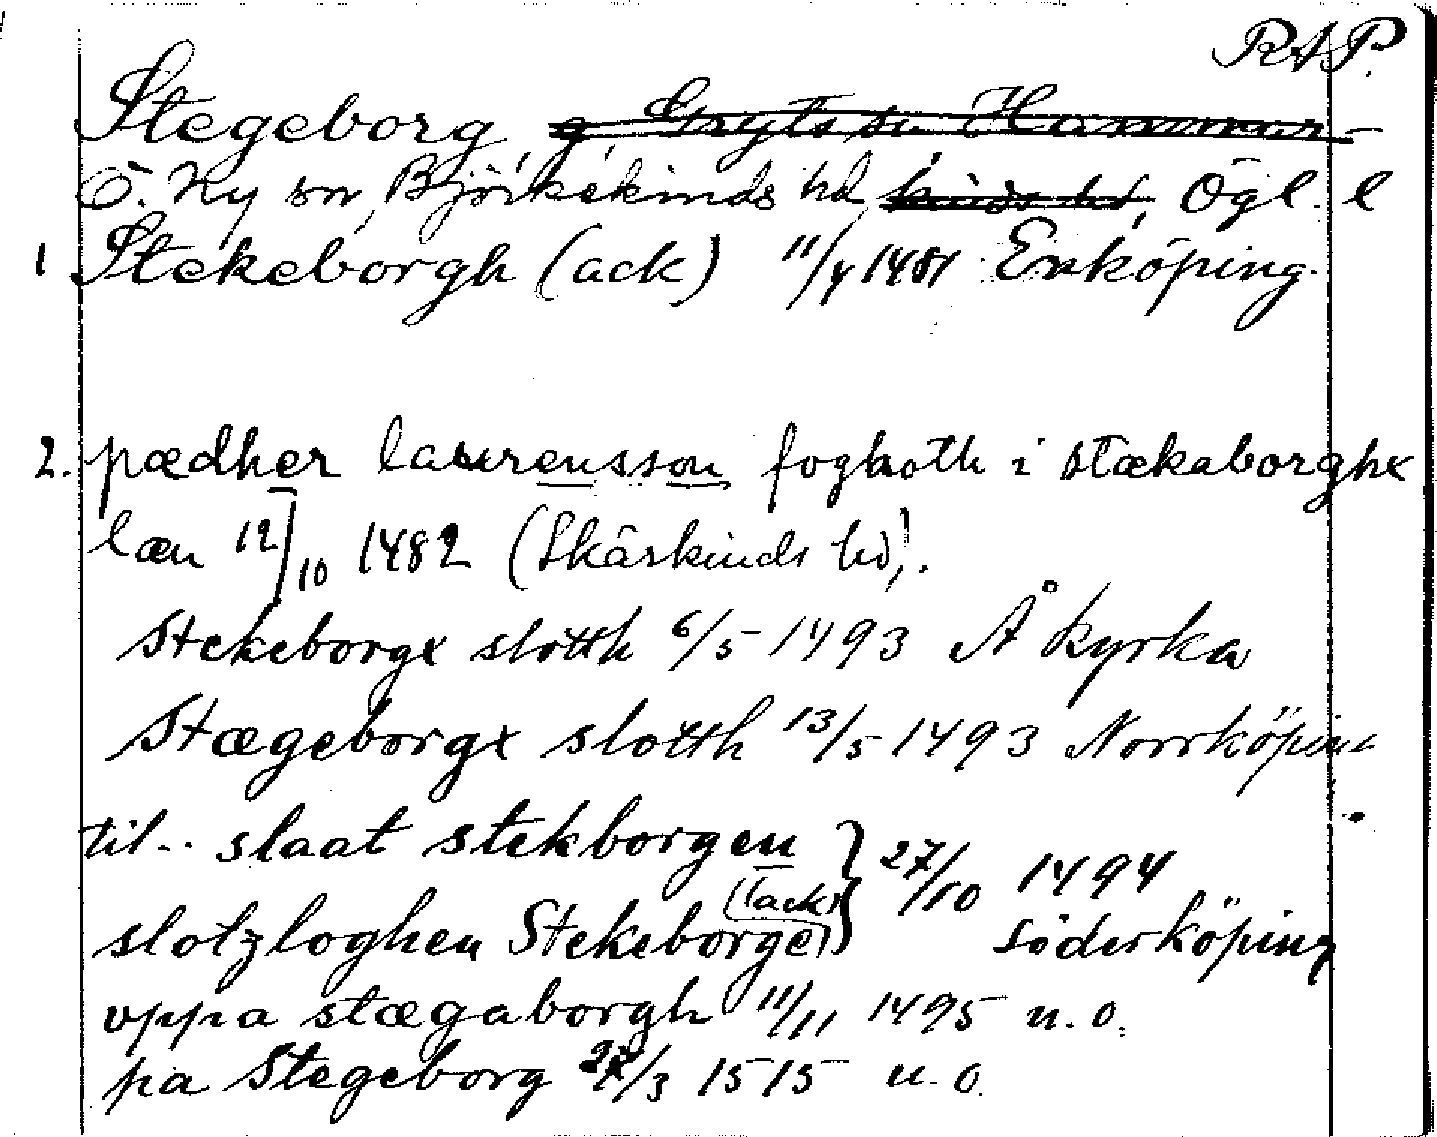 RAP.
Stegeborg, g, Gryts sn, Hammar-
Ö. Ny sn, Björkekinds hd, kinds hd, Ögl. l
1 Stekeborgh (ack) 11/4 1481 Enköping.
2. pædher laurensson foghoth i stækaborghx
læn 12/10 1482 (Skärkinds hd).
Stekeborgx slotth 6/5 1493 Å kyrka
Stægeborgx slotth 13/5 1493 Norrköping
til.. slaat stekborgen } 27/10 1494
slotzloghen Stekeborge (ack) } Söderköping
vppa stægaborgh 11/11 1495 u. o.
pa Stegeborg 27/3 1515 u. o.